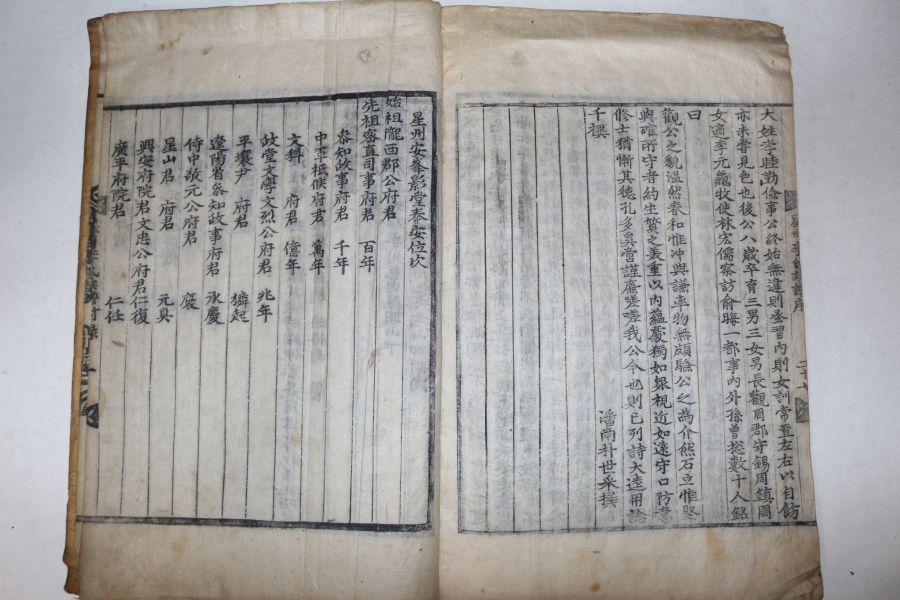 大姓孝睦勤儉事公終始無違則晩習內則女訓常置左右以自飭
亦未嘗見色也後公八歲卒育三男三女男長觀周郡守錫周鎭周
女適李元龜牧使林宏儒察訪俞晦一都事內外孫曾摠數十人銘
曰
觀公之貌溫然春和惟冲與謙率物無頗驗公之爲介然石立惟堅
與確所守者約生質之義重以內蘊處獨如衆視近如遠守口防意
修士猶慚其德孔多吳當謹廉嗟嗟我公今也則已列詩大逵用詒
千禩
潘南朴世采撰
星州安峯影堂奉安位次
始祖隴西郡公府君
先祖密直司事府君 百年
叅知政事府君 千年
中 祗候府君 萬年
文科 府君 億年
政堂文學文烈公府君 兆年
平壤尹 府君 獜起
遼陽省叅知政事府君 承慶
侍中敬元公府君 褒
星山君 府君 元具
興安府院君文忠公府君 仁復
廣平府院君 仁任